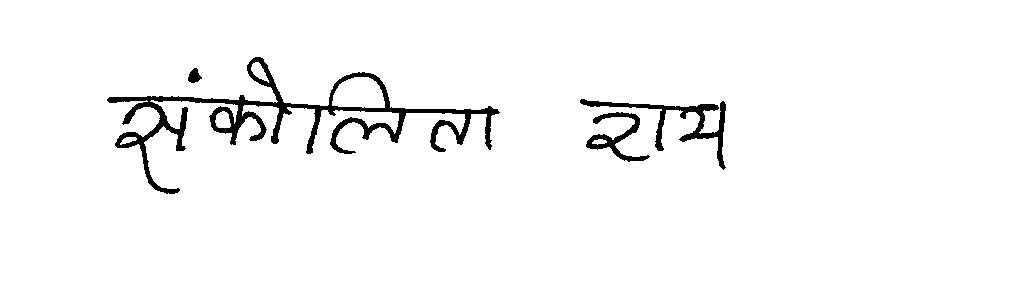 संकोलिता राय